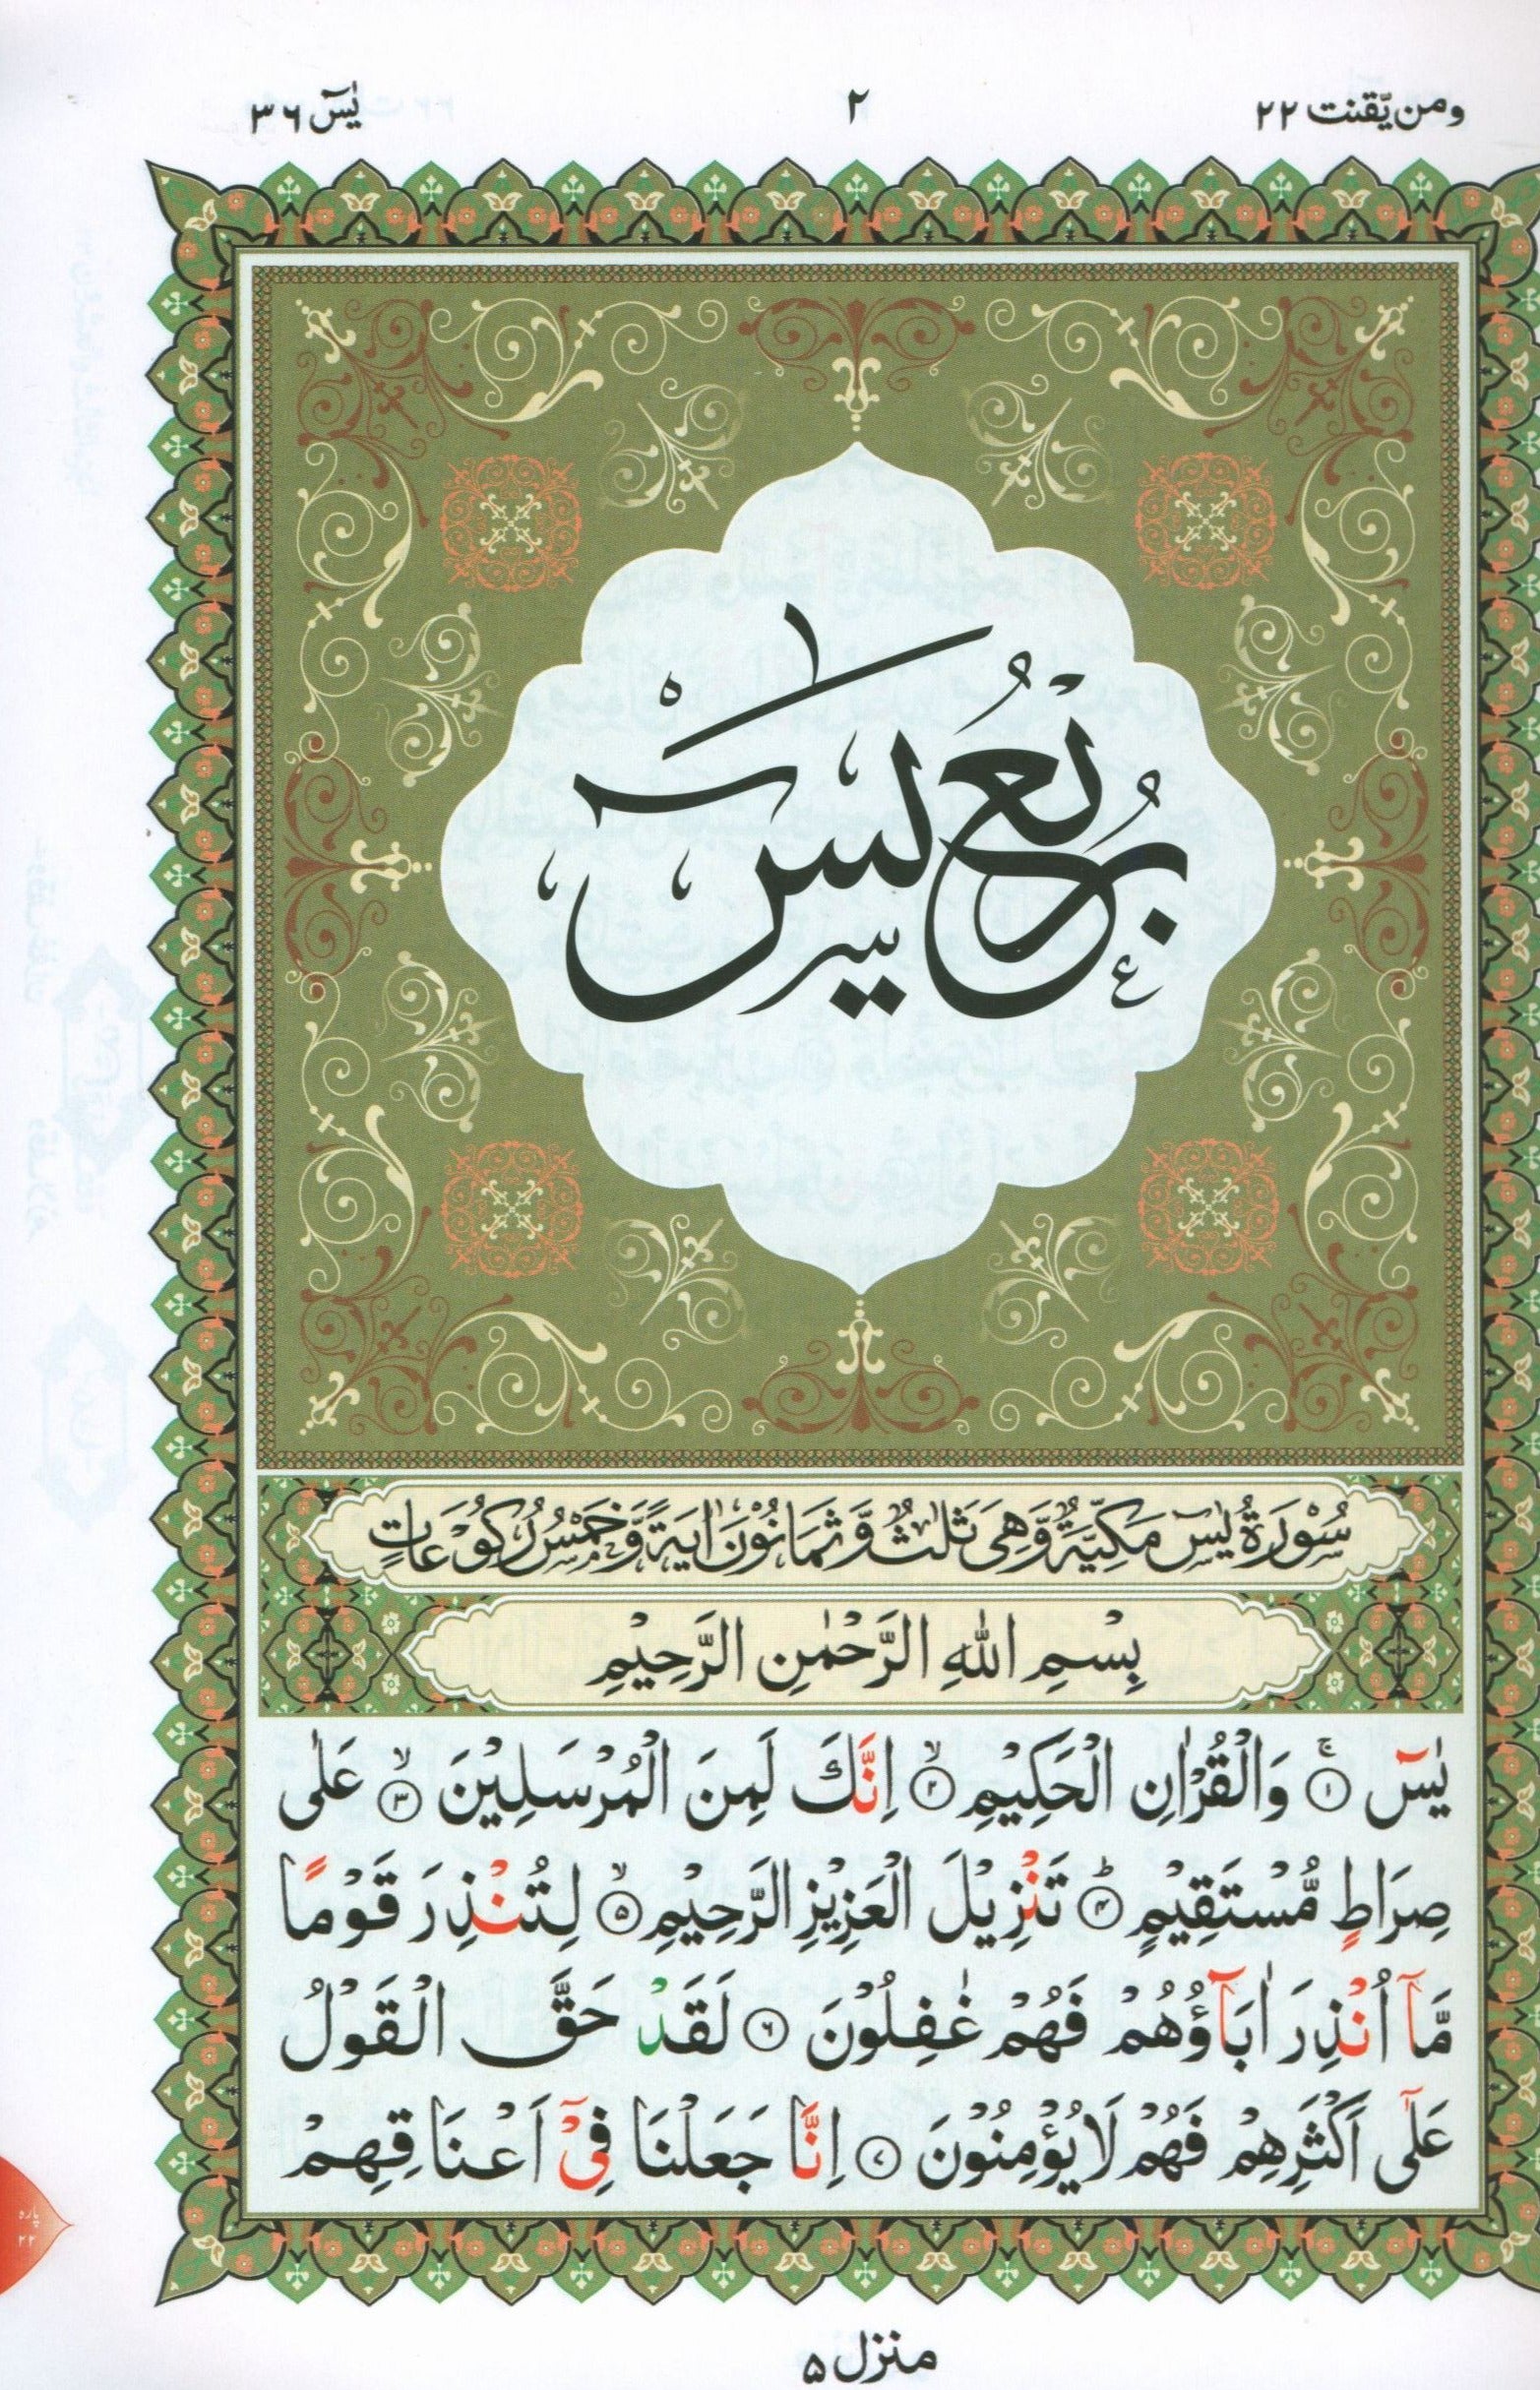 ومن يّقنت ٢٢
٢
يٰسٓ ٣٦
رُبُعُ يٰسٓ
سُوْرَةُ يٰسٓ مَكِّيَّةٌ وَّهِيَ ثَلٰثٌ وَّثَمَانُوْنَ اٰيَةً وَّخَمْسُ رُكُوْعَاتٍ
بِسْمِ اللّٰهِ الرَّحْمٰنِ الرَّحِيْمِ
يٰسٓ ۚ‏ ﴿۱﴾ وَالْقُرْاٰنِ الْحَكِيْمِ ۙ‏ ﴿۲﴾ اِنَّكَ لَمِنَ الْمُرْسَلِيْنَ ۙ‏ ﴿۳﴾ عَلٰى
صِرَاطٍ مُّسْتَقِيْمٍ ؕ‏ ﴿۴﴾ تَنْزِيْلَ الْعَزِيْزِ الرَّحِيْمِ ۙ‏ ﴿۵﴾ لِتُنْذِرَ قَوْمًا
مَّاۤ اُنْذِرَ اٰبَآؤُهُمْ فَهُمْ غٰفِلُوْنَ ﴿۶﴾ لَقَدْ حَقَّ الْقَوْلُ
عَلٰٓى اَكْثَرِهِمْ فَهُمْ لَا يُؤْمِنُوْنَ ﴿۷﴾ اِنَّا جَعَلْنَا فِىْۤ اَعْنَاقِهِمْ
پارہ
٢٢
منزل ۵